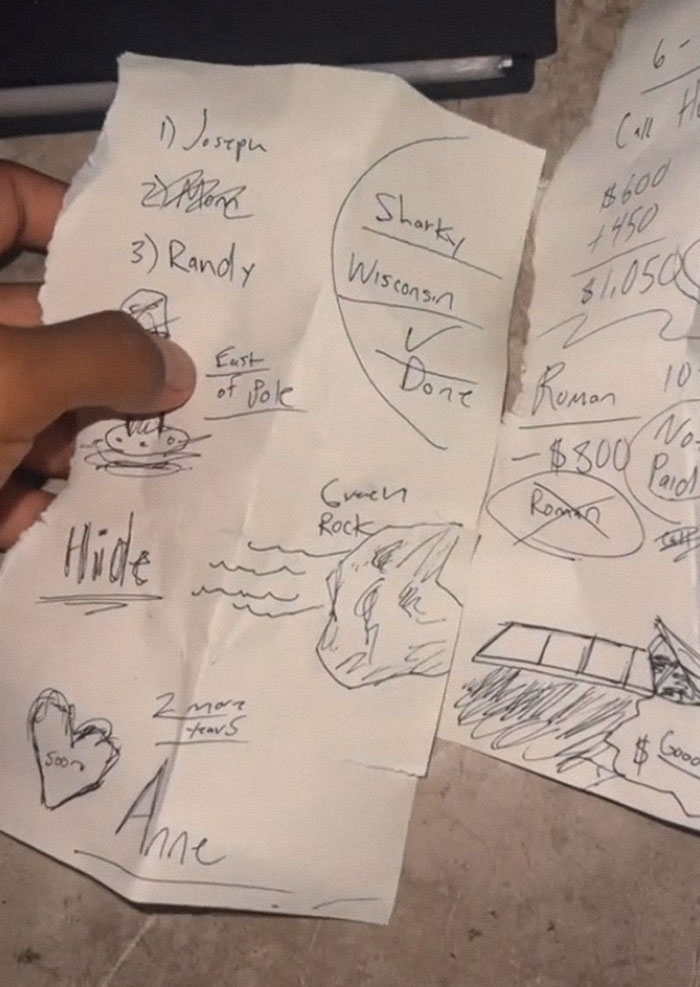 1) Joseph
2)
3) Randy
East
of Pole
Hide
Sharky
Wisconsin
Done
Green
Rock
Soon
2 more
years
Anne
6 -
Call
$600
+ 450
$1,050
Roman
- $800
Roman
10
No
Paid
$ Good